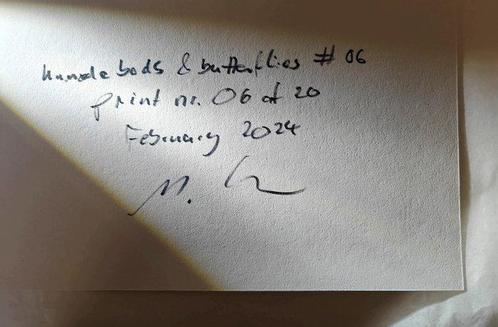 bods & butterflies # 06
print nr. 06 of 20
February 2024
M.